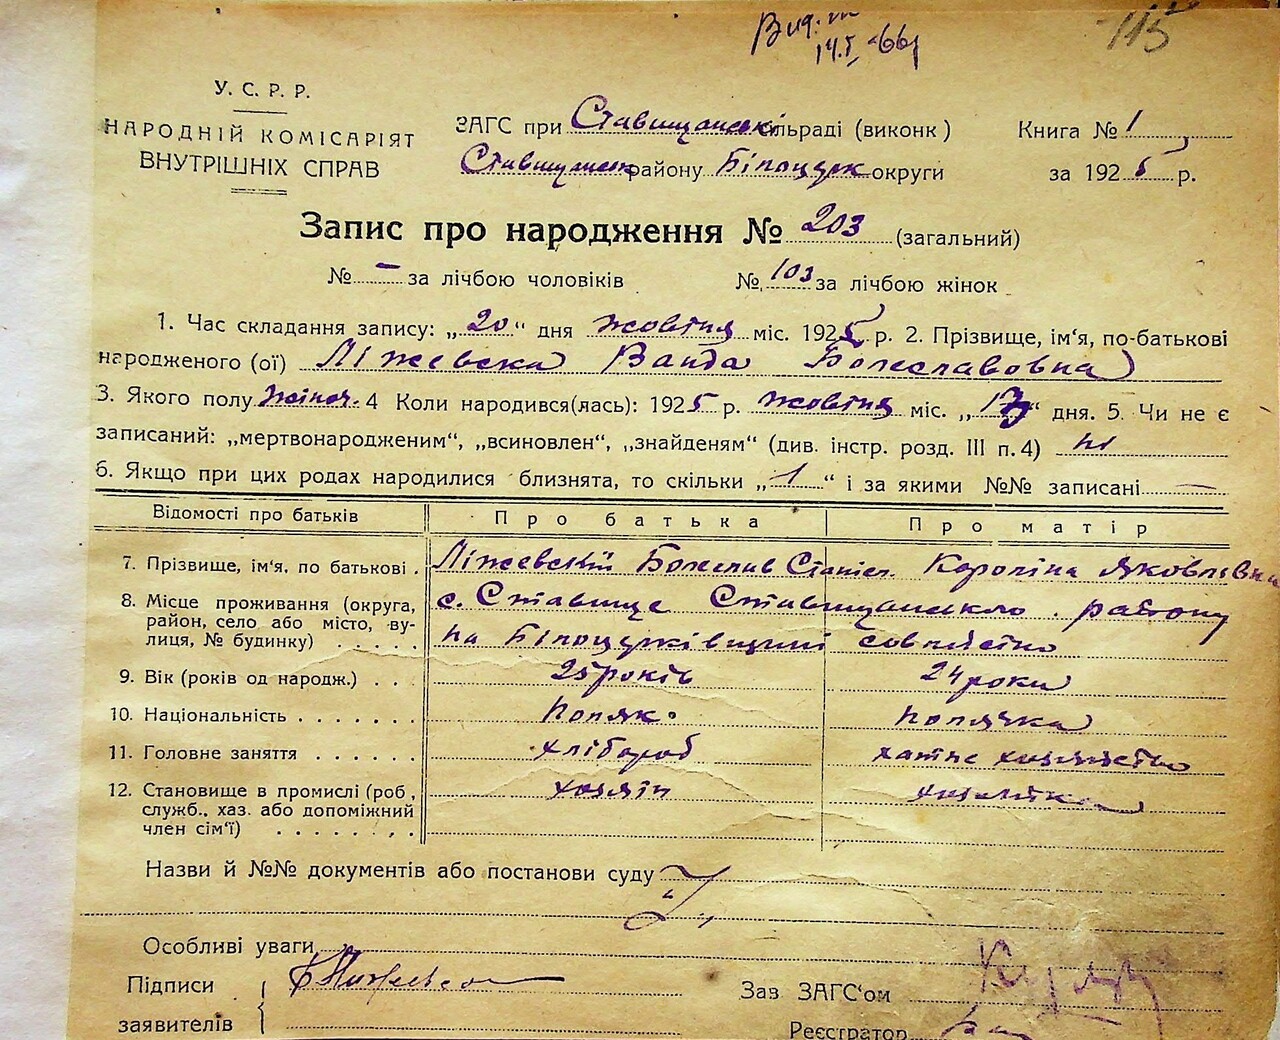 Вид.
14.I.-66
115
У. С. Р. Р.
НАРОДНІЙ КОМІСАРІЯТ
ВНУТРІШНІХ СПРАВ
ЗАГС при Ставищанські сільраді (виконк)
Ставищанск району Білоцерк округи
Книга № 1
за 1925 р.
Запис про народження № 203 (загальний)
№ – за лічбою чоловіків № 103 за лічбою жінок
1. Час складання запису: „20“ дня жовтня міс. 1925 р. 2. Прізвище, ім‘я, по-батькові
народженого (ої) Ліжевска Ванда Болеславовна
3. Якого полу жіноч. 4 Коли народився(лась): 1925 р. жовтня міс. „17“ дня. 5. Чи не є
записаний: „мертвонародженим“, „всиновлен“, „знайденям“ (див. інстр. розд. III п. 4) ні
6. Якщо при цих родах народилися близнята, то скільки „1“ і за якими №№ записані —
Відомості про батьків Про батька Про матір
7. Прізвище, ім‘я, по батькові. Ліжевскій Болеслав Станісл. Кароліна Яковлівна
8. Місце проживання (округа, район, село або місто, вулиця, № будинку) с. Ставище Ставищанського району
на Білоцерківщині совмістно
9. Вік (років од народж.) 25 років 24 роки
10. Національність поляк. полячка
11. Головне заняття хлібороб хатнє хозяйство
12. Становище в промислі (роб, служб., хаз. або допоміжний член сім‘ї) хозяін хозяйка
Назви й №№ документів або постанови суду
Особливі уваги
Підписи
заявителів
Зав ЗАГС‘ом
Реєстратор